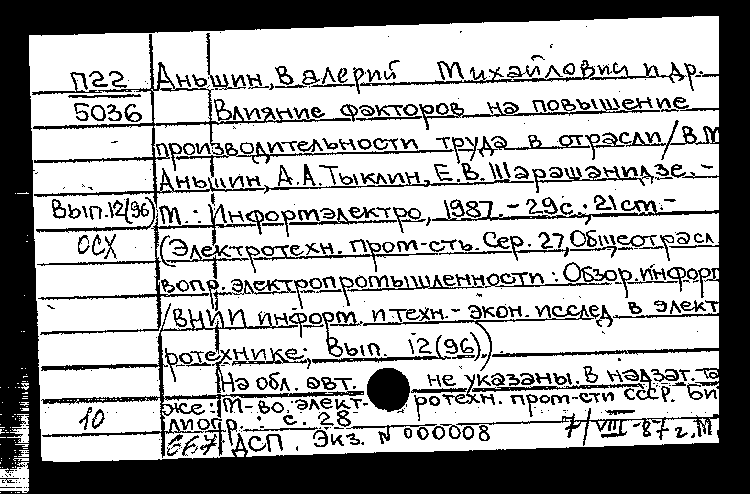 П22 Аньшин, Валерий Михайлович и др.
5036 Влияние факторов на повышение
производительности труда в отрасли/В.М
Аньшин, А.А. Тыклин, Е.В. Шарашанидзе. -
Вып. 12(96) М.: Информэлектро, 1987. - 29с.; 21 cm. -
ОСХ (Электротехн. пром-сть. Сер. 27, Общеотрасл
вопр. электропромышленности: Обзор. информ
/ВНИИ информ. и техн. - экон. исслед. в элект
ротехнике; Вып. 12(96))
На обл. авт. не указаны. В надзаг. та
10 же: М-во. элект- ротехн. пром-сти СССР. Биб
лиогр.: с. 28
667 ДСП. Экз. N 000008 7/VIII-87г. М.